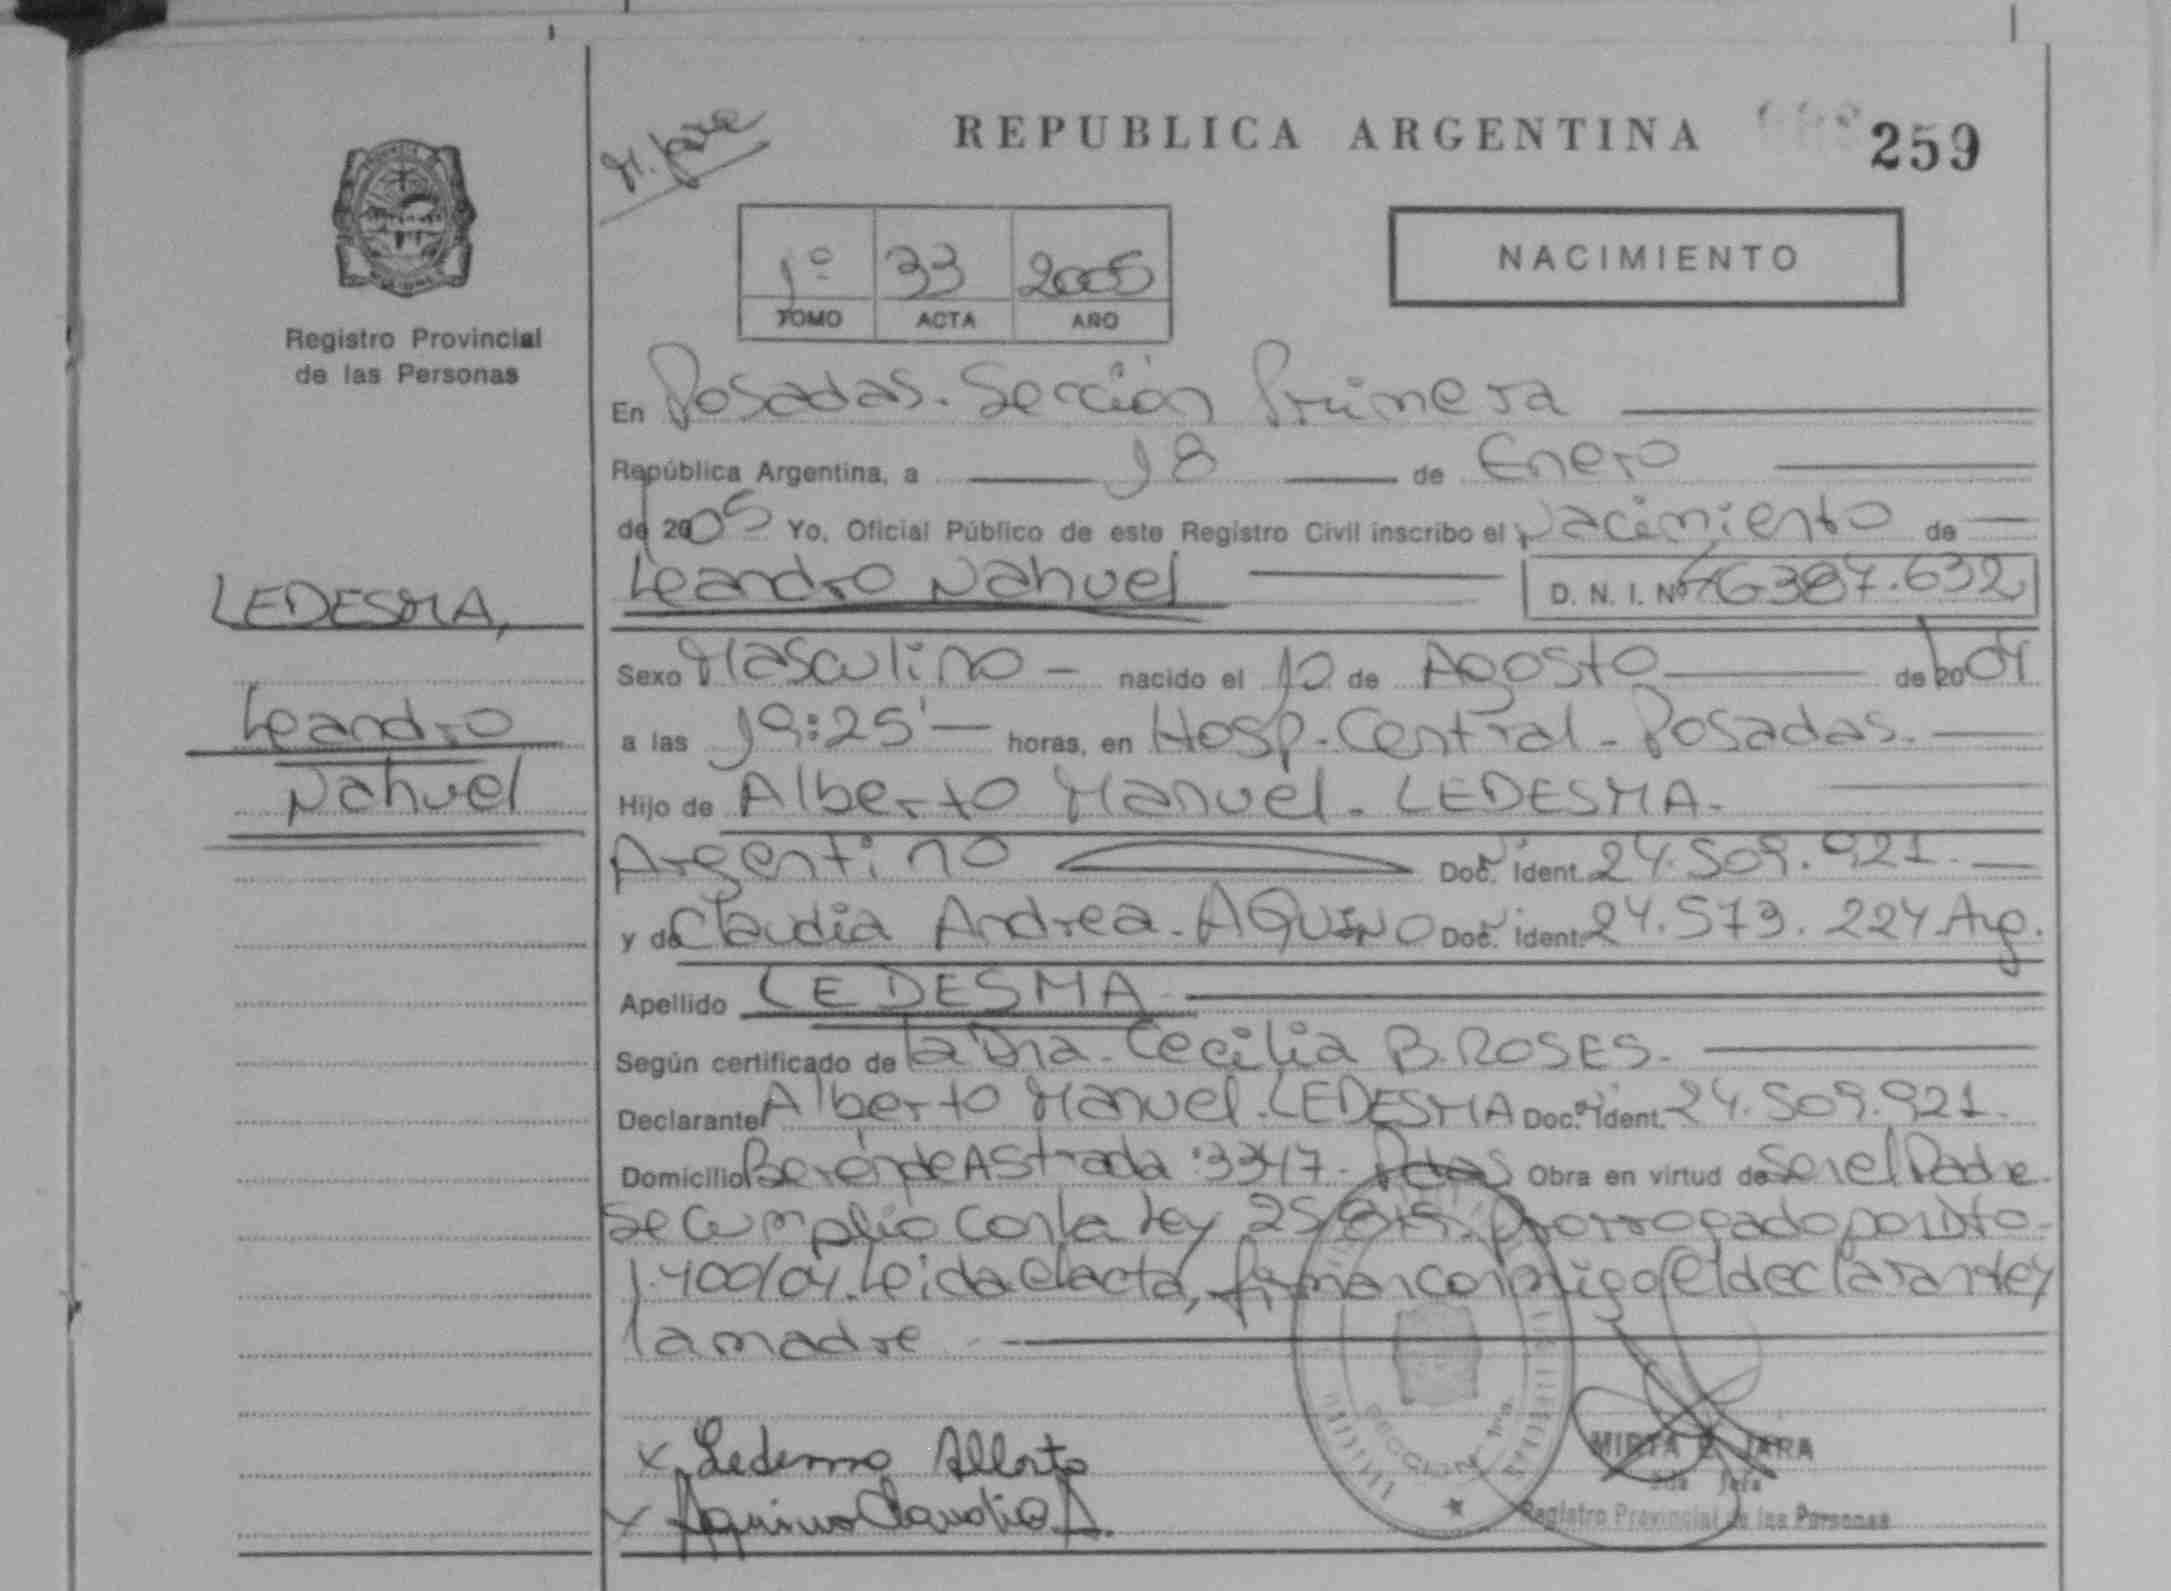 REPUBLICA ARGENTINA 259
NACIMIENTO
1º 33 2005
TOMO ACTA AÑO
Registro Provincial
de las Personas
En Posadas. Sección Primera
República Argentina, a 18 de Enero
de 2005 Yo, Oficial Público de este Registro Civil inscribo el Nacimiento de
Leandro Nahuel D. N. I. Nº 46387.632
LEDESMA,
Leandro
Nahuel
Sexo Masculino - nacido el 10 de Agosto de 2004
a las 19:25' horas, en Hosp. Central - Posadas.
Hijo de Alberto Manuel. LEDESMA.
Argentino Doc. Ident. 24.509.921.
y de Claudia Andrea. AQUINO Doc. Ident. 24.573.224 Arg.
Apellido LEDESMA
Según certificado de la Dra. Cecilia B. ROSES.
Declarante Alberto Manuel. LEDESMA Doc. Ident. 24.509.921.
Domicilio Berón de Astrada 3347. Pdas Obra en virtud de Ser el Padre.
Se cumplió con la Ley prorrogado por Dto.
1.400/04. Leida el acta, firman conmigo el declarante y
la madre
x Ledesma Alberto
x Aquino Claudia A.
SECCION 1ra.
MIRTA JARA
Jefa
Registro Provincial de las Personas